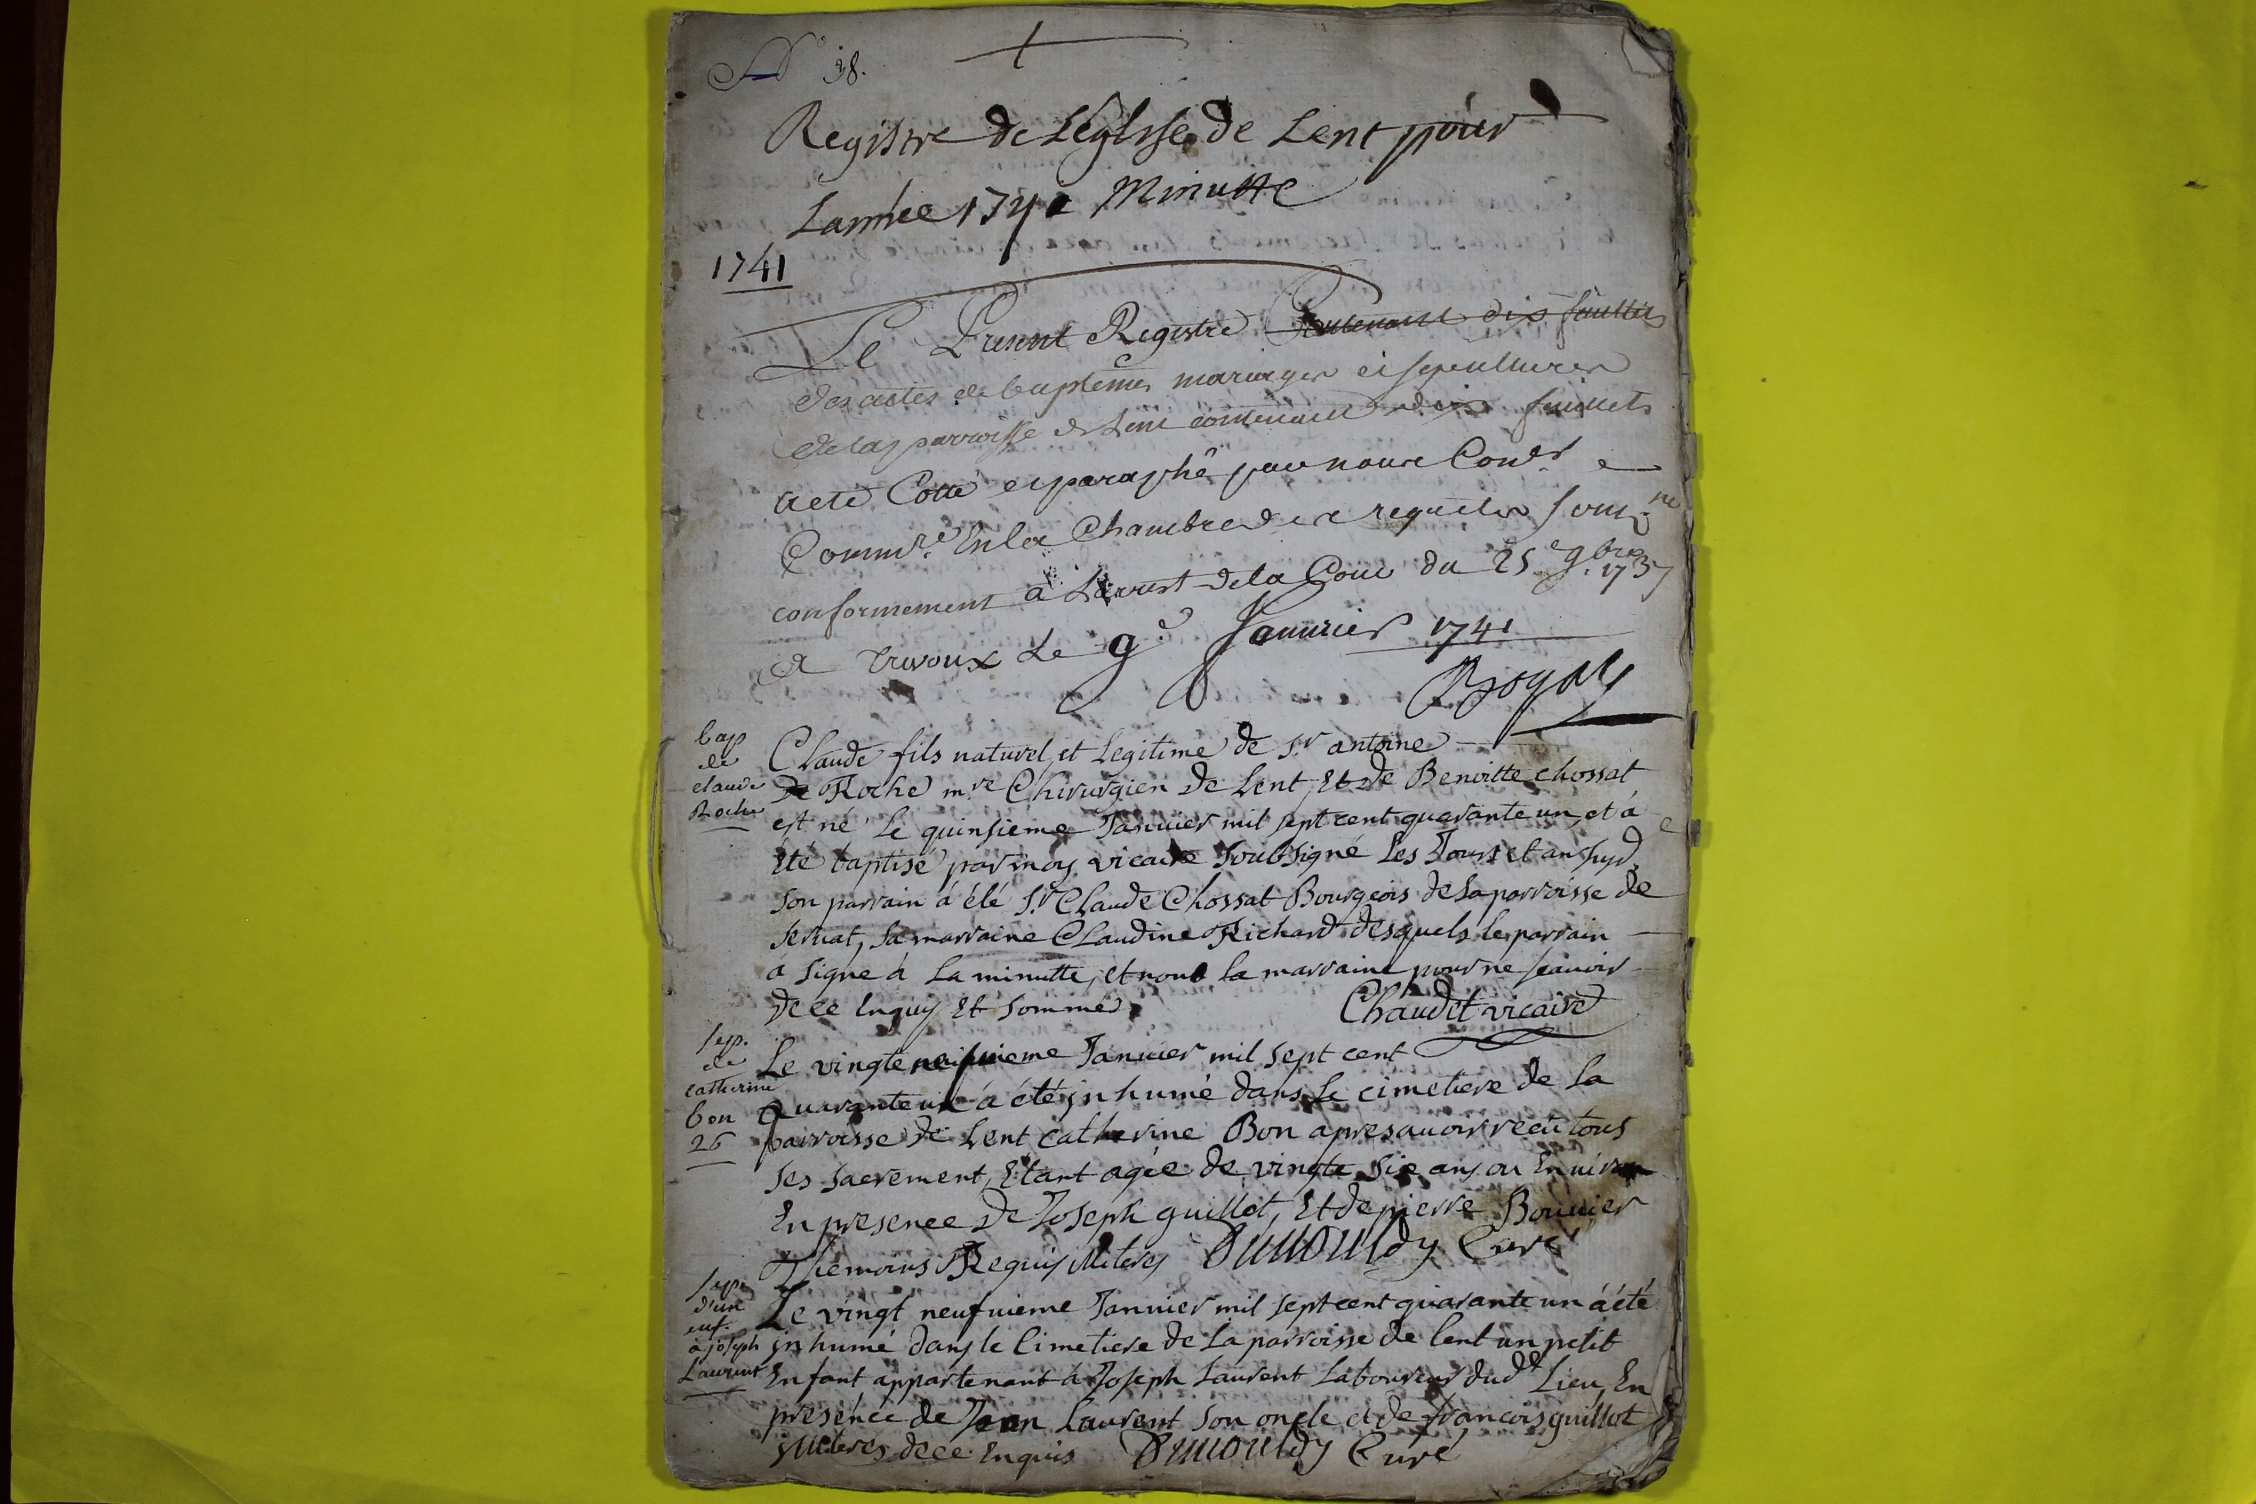 N° 38.
Registre de Léglise de Lent pour
Lannée 1741 Minutte
1741
Le Present Registre Contenant dix feuillets
des actes de baptemes mariages et sepultures
de la parroisse de Lent contenant dix feuillets
a eté Cotté et paraphé par nous Coner
Commre. En la Chambre des requetes sousne
conformement à L'arrest de la Cour du 25e 9bre 1737
a Trevoux Le 9e Janvier 1741
bap
de
claude
Roche
Claude fils naturel et Legitime de Sr. antoine
De Roche mre Chirurgien de Lent, Et de Benoitte chossat
est né Le quinsieme Janvier mil sept cent quarante un, et à
été baptisé par moy vicaire soubsigné Les Jours et an susd.
Son parrain à été Sr. Claude Chossat Bourgeois de la parroisse de
servat, sa marraine Claudine Richard desquels le parrain
à signe à La minutte, et non la marraine pour ne scavoir
de ce Enquis Et sommé Chaudet vicaire
sep.
de
catherine
bon
26
Le vingte neufuieme Janvier mil sept cent
Quarante un à été inhumé dans le cimetiere de la
parroisse de Lent catherine Bon apres avoir recu tous
ses sacrement, Etant agée de vingte six ans ou Environ
En presence de Joseph guillot, Et de pierre Bouvier
Themoins Requis illiteres Dumouldy Curé
sep.
d'un
enf.
à joseph
Laurent
Le vingt neufuieme Janvier mil sept cent quarante un à été
inhumé dans le Cimetiere de La parroisse de lent un petit
Enfant appartenant à Joseph Laurent Laboureur dud. Lieu, En
presence de Jean Laurent son oncle et de francois guillot
illiteres de ce Enquis Dumouldy Curé